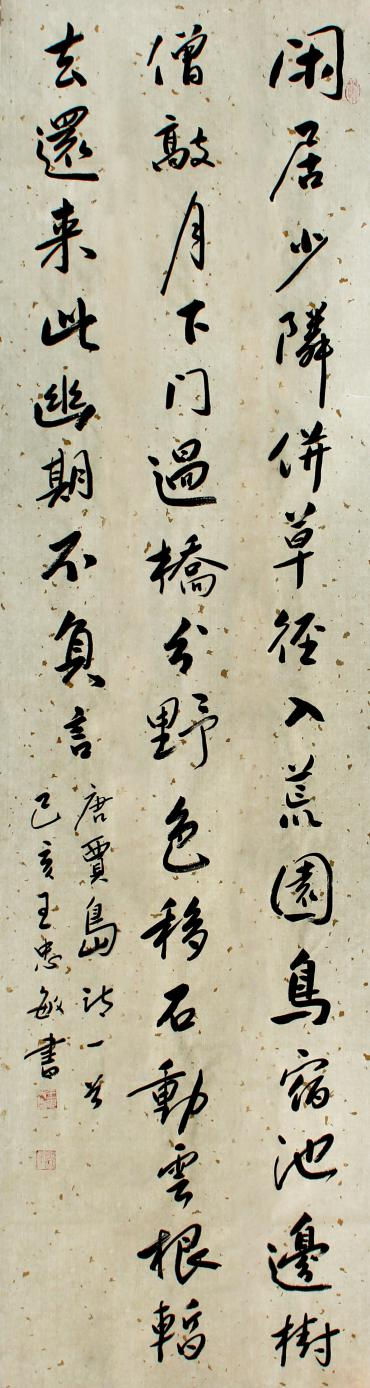 闲居少隣併草径入荒園鳥宿池邊樹
僧敲月下门過橋分野色移石動雲根暫
去還来此幽期不負言
唐賈島詩一首
己亥王忠敏書